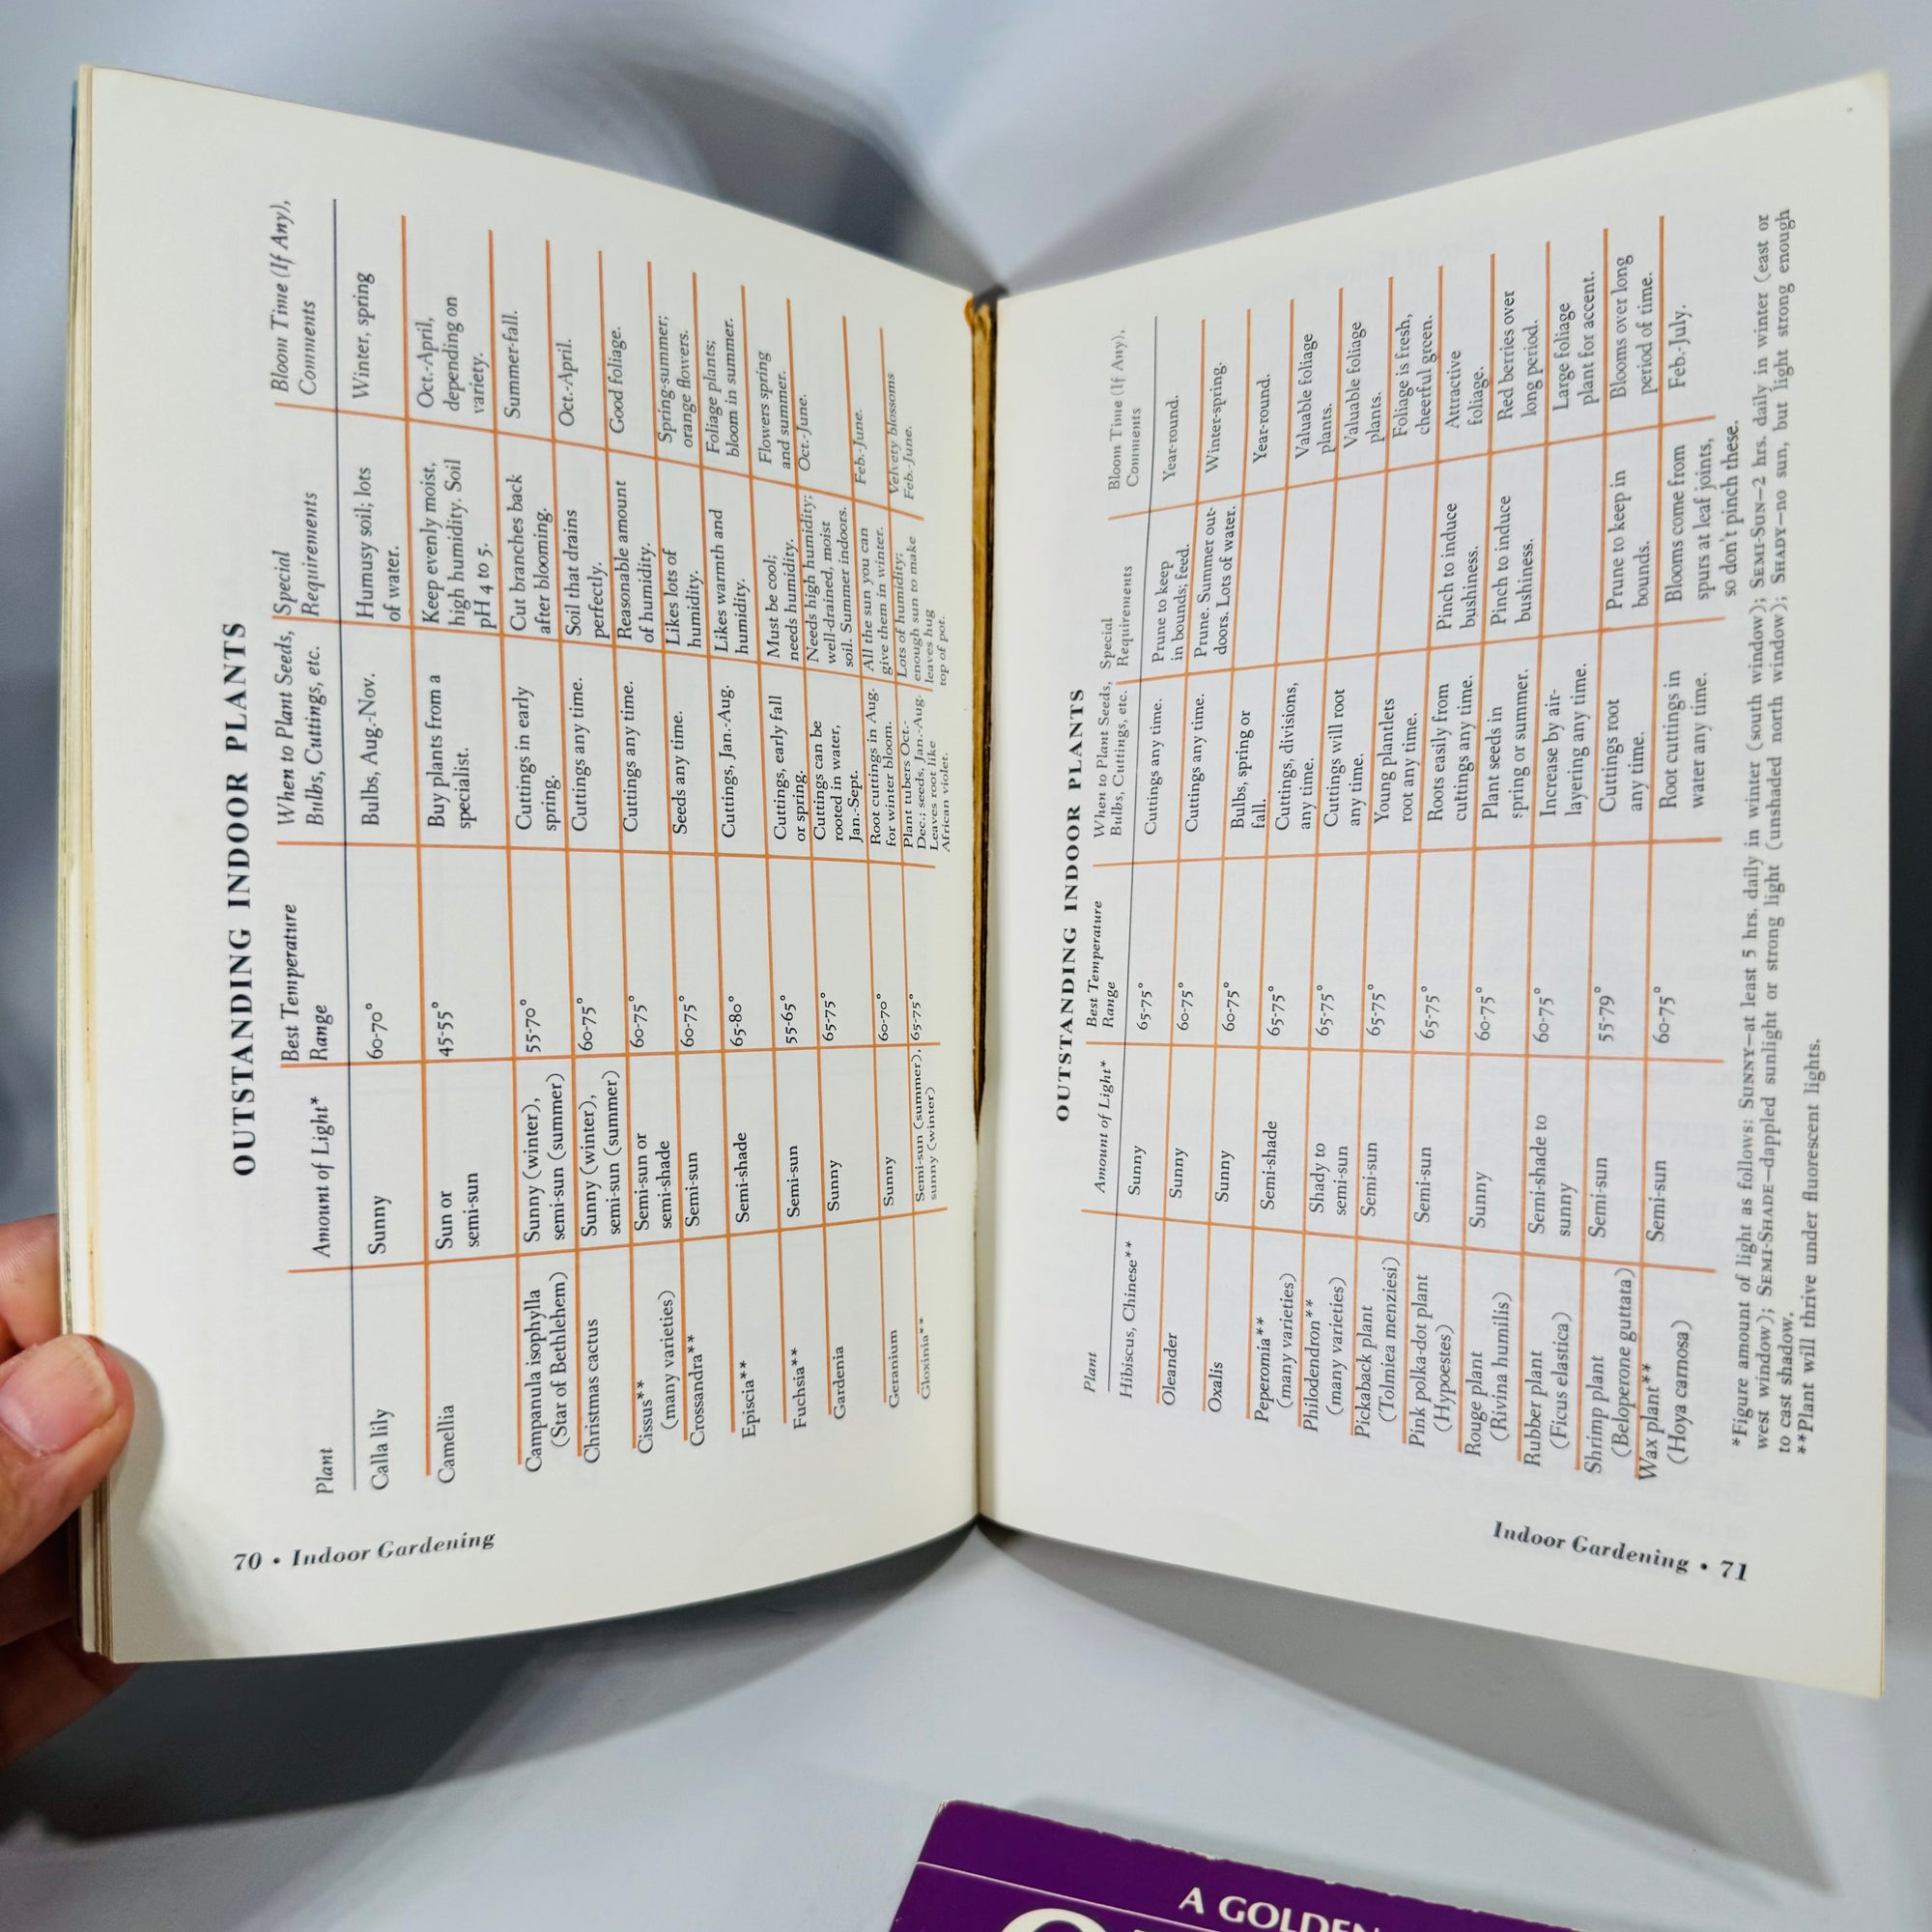 OUTSTANDING INDOOR PLANTS
Plant
Amount of Light*
Best Temperature
Range
When to Plant Seeds,
Bulbs, Cuttings, etc.
Special
Requirements
Bloom Time (If Any),
Comments
Calla lily
Sunny
60-70°
Bulbs, Aug.-Nov.
Humusy soil; lots
of water.
Winter, spring
Camellia
Sun or
semi-sun
45-55°
Buy plants from a
specialist.
Keep evenly moist,
high humidity. Soil
pH 4 to 5.
Oct.-April,
depending on
variety.
Campanula isophylla
(Star of Bethlehem)
Sunny (winter),
semi-sun (summer)
55-70°
Cuttings in early
spring.
Cut branches back
after blooming.
Summer-fall.
Christmas cactus
Sunny (winter),
semi-sun (summer)
60-75°
Cuttings any time.
Soil that drains
perfectly.
Oct.-April.
Cissus**
(many varieties)
Semi-sun or
semi-shade
60-75°
Cuttings any time.
Reasonable amount
of humidity.
Good foliage.
Crossandra**
Semi-sun
60-75°
Seeds any time.
Likes lots of
humidity.
Spring-summer;
orange flowers.
Episcia**
Semi-shade
65-80°
Cuttings, Jan.-Aug.
Likes warmth and
humidity.
Foliage plants;
bloom in summer.
Fuchsia**
Semi-sun
55-65°
Cuttings, early fall
or spring.
Must be cool;
needs humidity.
Flowers spring
and summer.
Gardenia
Sunny
65-75°
Cuttings can be
rooted in water,
Jan.-Sept.
Needs high humidity;
well-drained, moist
soil. Summer indoors.
Oct.-June.
Geranium
Sunny
60-70°
Root cuttings in Aug.
for winter bloom.
All the sun you can
give them in winter.
Feb.-June.
Gloxinia**
Semi-sun (summer),
sunny (winter)
65-75°
Plant tubers Oct.-
Dec.; seeds, Jan.-Aug.
Leaves root like
African violet.
Lots of humidity;
enough sun to make
leaves hug
top of pot.
Velvety blossoms
Feb.-June.
70 • Indoor Gardening
OUTSTANDING INDOOR PLANTS
Plant
Amount of Light*
Best Temperature
Range
When to Plant Seeds,
Bulbs, Cuttings, etc.
Special
Requirements
Bloom Time (If Any),
Comments
Hibiscus, Chinese**
Sunny
65-75°
Cuttings any time.
Prune to keep
in bounds; feed.
Year-round.
Oleander
Sunny
60-75°
Cuttings any time.
Prune. Summer out-
doors. Lots of water.
Winter-spring.
Oxalis
Sunny
60-75°
Bulbs, spring or
fall.
Year-round.
Peperomia**
(many varieties)
Semi-shade
65-75°
Cuttings, divisions,
any time.
Valuable foliage
plants.
Philodendron**
(many varieties)
Shady to
semi-sun
65-75°
Cuttings will root
any time.
Valuable foliage
plants.
Pickaback plant
(Tolmiea menziesi)
Semi-sun
65-75°
Young plantlets
root any time.
Foliage is fresh,
cheerful green.
Pink polka-dot plant
(Hypoestes)
Semi-sun
65-75°
Roots easily from
cuttings any time.
Pinch to induce
bushiness.
Attractive
foliage.
Rouge plant
(Rivina humilis)
Sunny
60-75°
Plant seeds in
spring or summer.
Pinch to induce
bushiness.
Red berries over
long period.
Rubber plant
(Ficus elastica)
Semi-shade to
sunny
60-75°
Increase by air-
layering any time.
Large foliage
plant for accent.
Shrimp plant
(Beloperone guttata)
Semi-sun
55-79°
Cuttings root
any time.
Prune to keep in
bounds.
Blooms over long
period of time.
Wax plant**
(Hoya carnosa)
Semi-sun
60-75°
Root cuttings in
water any time.
Blooms come from
spurs at leaf joints,
so don't pinch these.
Feb.-July.
*Figure amount of light as follows: SUNNY—at least 5 hrs. daily in winter (south window); SEMI-SUN—2 hrs. daily in winter (east or
west window); SEMI-SHADE—dappled sunlight or strong light (unshaded north window); SHADY—no sun, but light strong enough
to cast shadow.
**Plant will thrive under fluorescent lights.
Indoor Gardening • 71
A GOLDEN